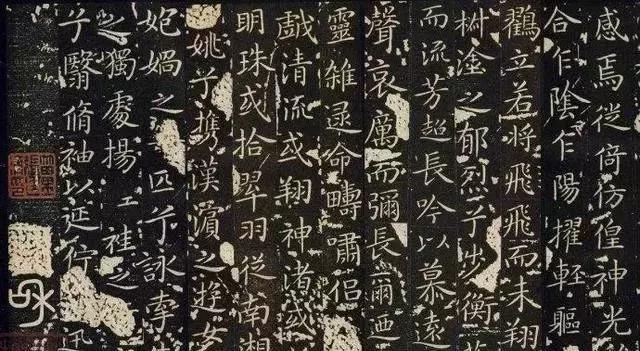 感焉徙倚仿偟神光
合乍陰乍陽擢輕軀
立若將飛飛而未翔
塗之郁烈兮步衡
而流芳超長吟以慕遠
聲哀厲而彌長爾迺
靈雜遝命疇嘯侶
戲清流或翔神渚或
明珠或拾翠羽從南湘
姚兮攜漢濱之遊女
媧之匹兮詠牽
之獨處揚袿之
兮翳脩袖以延佇迅